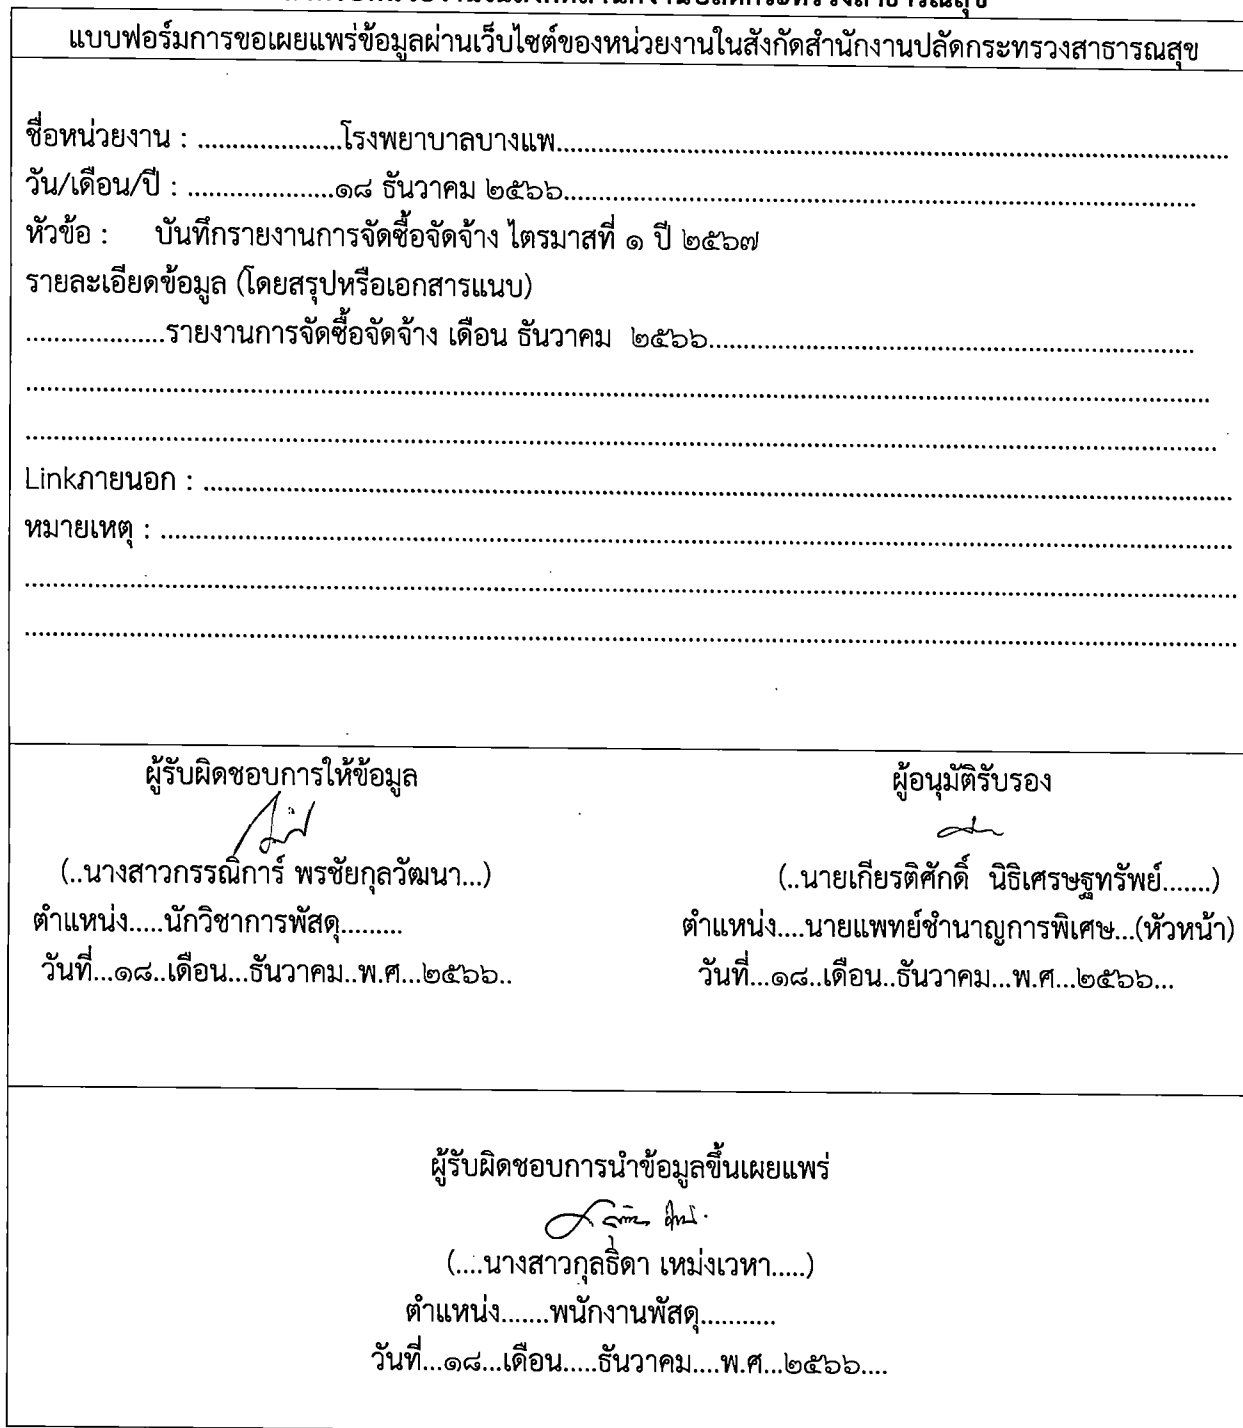 แบบฟอร์มการขอเผยแพร่ข้อมูลผ่านเว็บไซต์ของหน่วยงานในสังกัดสำนักงานปลัดกระทรวงสาธารณสุข
ชื่อหน่วยงาน : .....................โรงพยาบาลบางแพ.....................
วัน/เดือน/ปี : .....................๑๘ ธันวาคม ๒๕๖๖.....................
หัวข้อ : บันทึกรายงานการจัดซื้อจัดจ้าง ไตรมาสที่ ๑ ปี ๒๕๖๗
รายละเอียดข้อมูล (โดยสรุปหรือเอกสารแนบ)
....................รายงานการจัดซื้อจัดจ้าง เดือน ธันวาคม ๒๕๖๖....................
Linkภายนอก : ....................
หมายเหตุ : ....................
ผู้รับผิดชอบการให้ข้อมูล
(..นางสาวกรรณิการ์ พรชัยกุลวัฒนา...)
ตำแหน่ง.....นักวิชาการพัสดุ.........
วันที่...๑๘..เดือน...ธันวาคม..พ.ศ...๒๕๖๖..
ผู้อนุมัติรับรอง
(..นายเกียรติศักดิ์ นิธิเศรษฐทรัพย์.......)
ตำแหน่ง....นายแพทย์ชำนาญการพิเศษ...(หัวหน้า)
วันที่...๑๘..เดือน..ธันวาคม...พ.ศ...๒๕๖๖...
ผู้รับผิดชอบการนำข้อมูลขึ้นเผยแพร่
(....นางสาวกุลธิดา เหม่งเวหา.....)
ตำแหน่ง.......พนักงานพัสดุ...........
วันที่...๑๘...เดือน.....ธันวาคม....พ.ศ...๒๕๖๖....